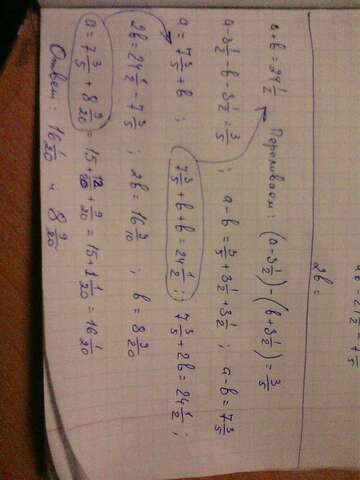 2b =
a+b=24 1/2 Переливаем: (a-3 1/2)-(b+3 1/2)=3/5
a-3 1/2-b-3 1/2=3/5 ; a-b=3/5+3 1/2+3 1/2 ; a-b=7 3/5
a=7 3/5+b ; 7 3/5+b+b=24 1/2 ; 7 3/5+2b=24 1/2 ;
2b=24 1/2-7 3/5 ; 2b=16 9/10 ; b=8 9/20
a=7 3/5+8 9/20=15+12/20+9/20=15+1 1/20=16 1/20
Ответ: 16 1/20 и 8 9/20